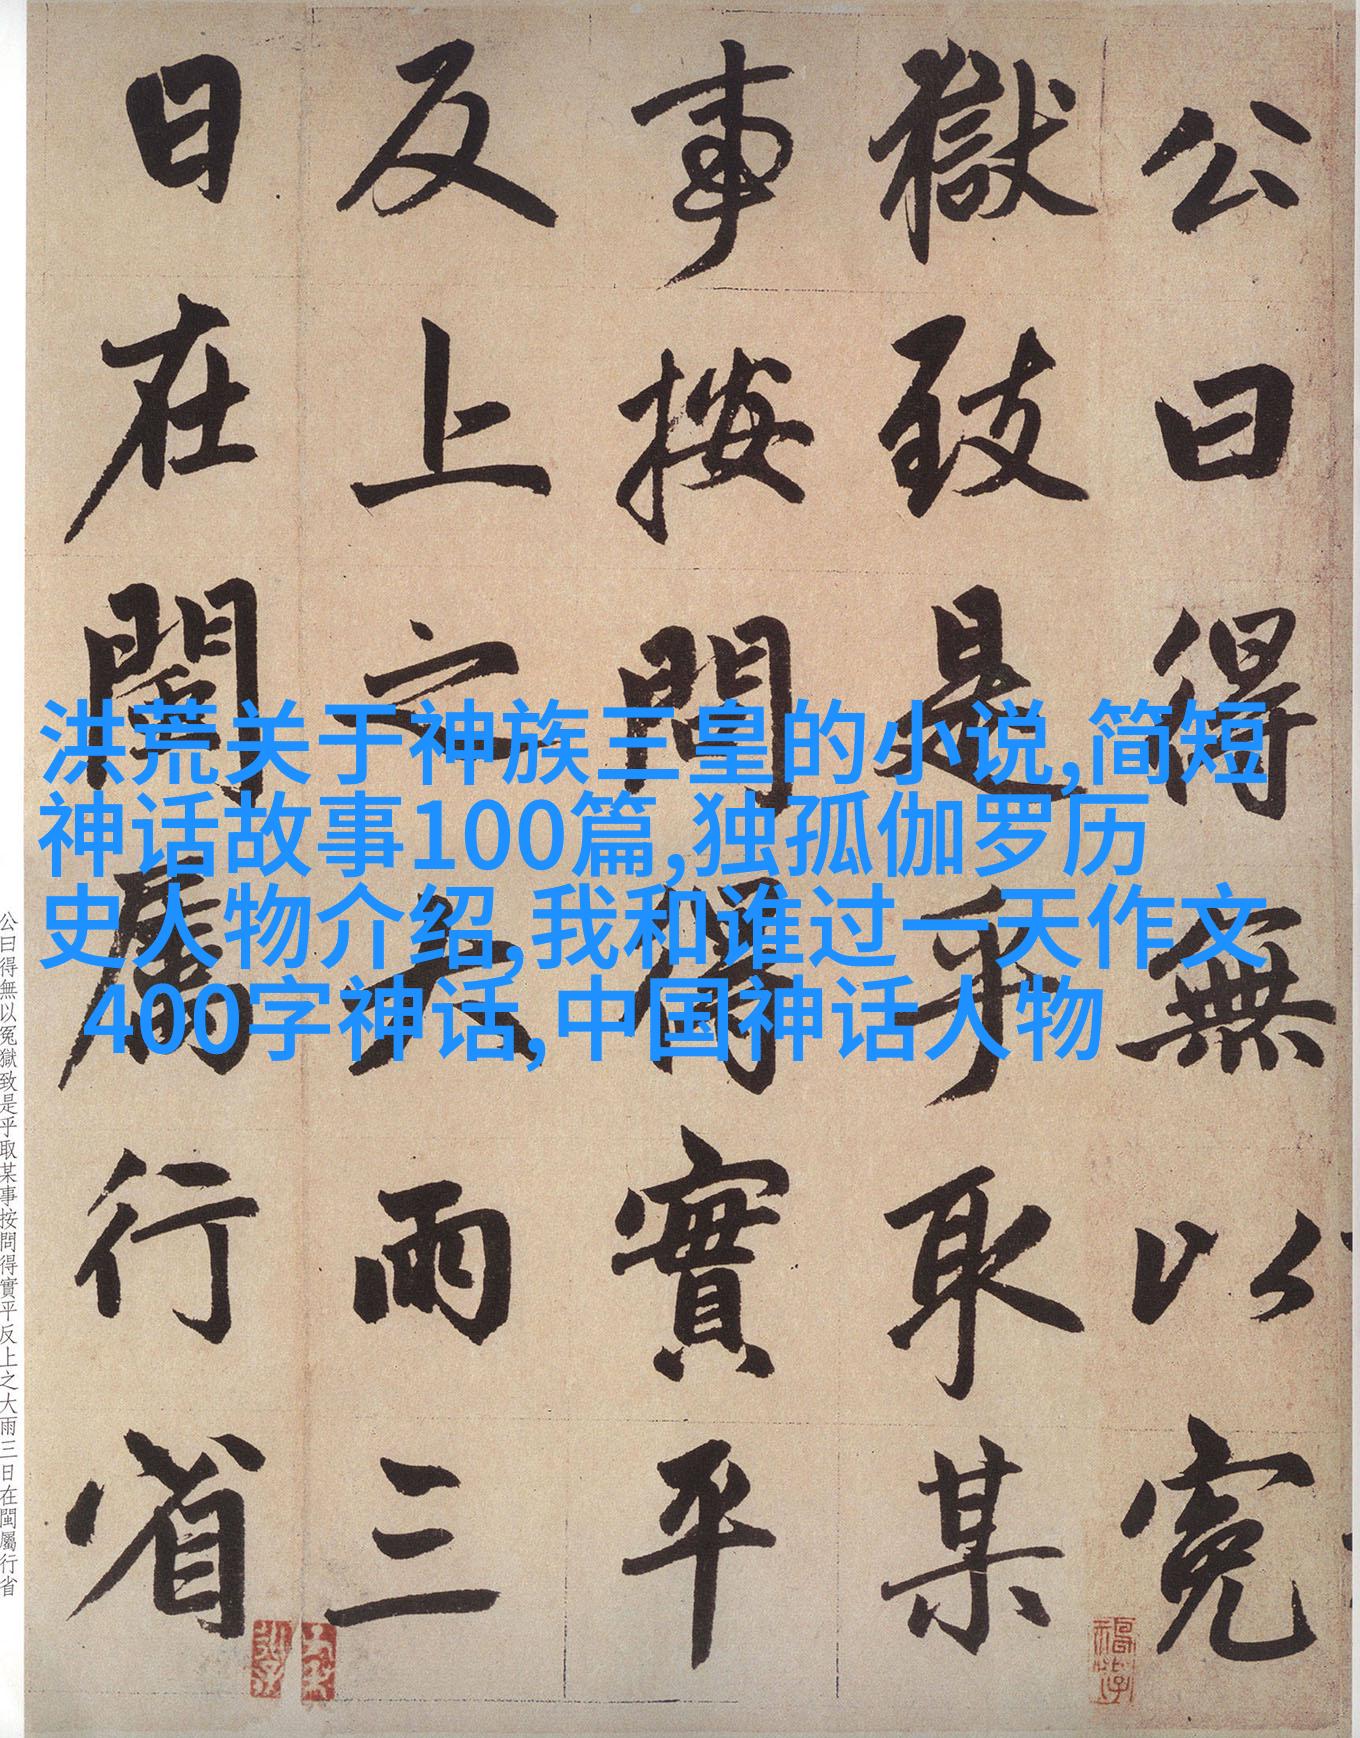 公曰得無以冤
獄致是乎取某
事按問得實平
反上之大雨三
日在閩属行省
洪荒关于神族三皇的小说,简短
神话故事100篇,独孤伽罗历
史人物介绍,我和谁过一天作文
400字神话,中国神话人物
公曰得無以冤獄致是乎取某事按問得實平反上之大雨三日在閩屬行省